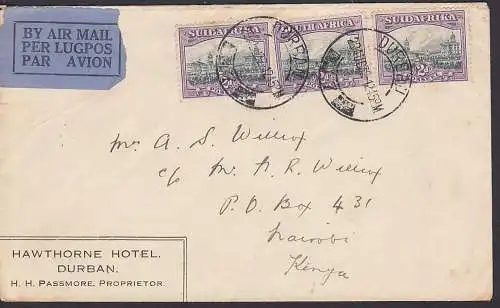 BY AIR MAIL
PER LUGPOS
PAR AVION
SUIDAFRIKA
SOUTH AFRICA
SUIDAFRIKA
2D
2D
2D
DURBAN
DURBAN
12.5PM
Mr A. S. Willcox
c/o Mr A. R. Willcox
P.O. Box 431
Nairobi
Kenya
HAWTHORNE HOTEL.
DURBAN.
H. H. PASSMORE, PROPRIETOR.